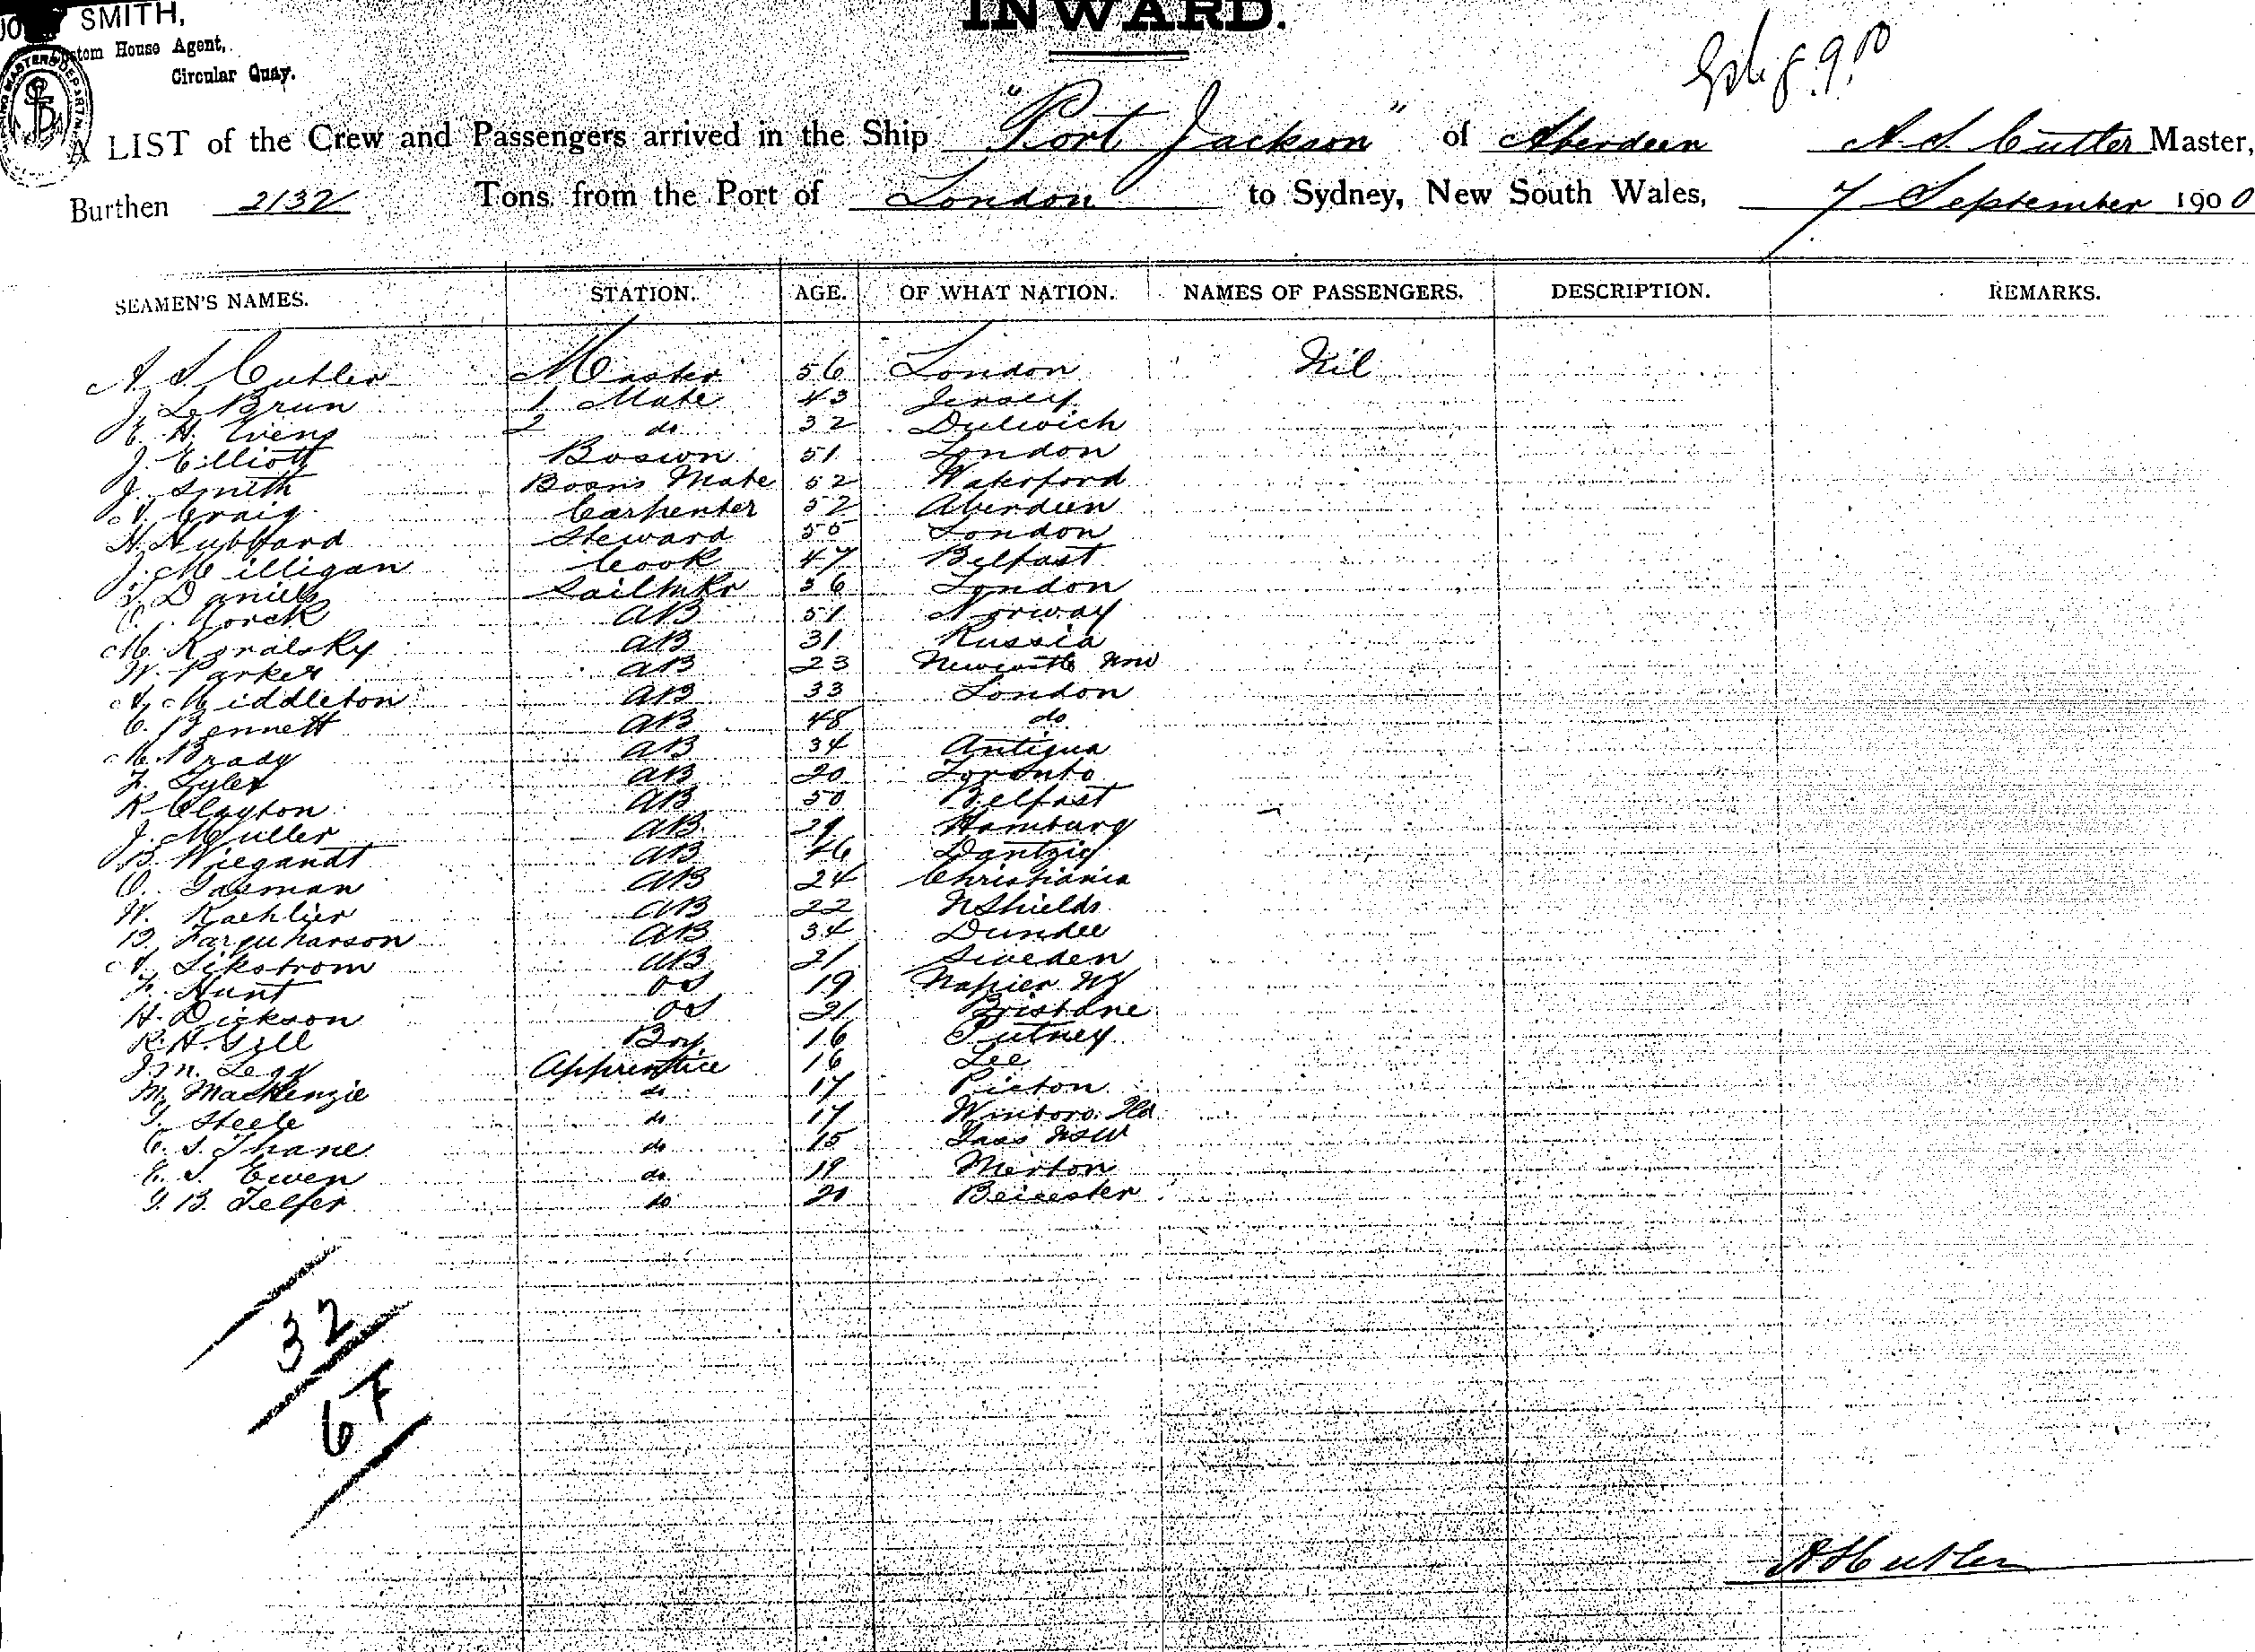 SMITH,
Custom House Agent,
Circular Quay.
INWARD.
A LIST of the Crew and Passengers arrived in the Ship "Port Jackson" of Aberdeen A. S. Cutler Master,
Burthen 2132 Tons from the Port of London to Sydney, New South Wales, 7 September 1900
SEAMEN'S NAMES. STATION. AGE. OF WHAT NATION. NAMES OF PASSENGERS. DESCRIPTION. REMARKS.
A S Cutler Master 56 London Nil
J. Le Brun 1 Mate 43 Jersey
E. H. Evens 2 do 32 Dulwich
J. Elliott Boswn 51 London
J. Smith Bosns Mate 52 Waterford
A. Craig Carpenter 52 Aberdeen
H. Hubbard Steward 55 London
J. Milligan Cook 47 Belfast
Daniels Sailmkr 56 London
AB 51 Norway
M. Koralsky AB 31 Russia
W. Parker AB 23 Newcastle NSW
A. Middleton AB 33 London
C. Bennett AB 48 do
M. Brady AB 34 Antigua
F. Tyler AB 20 Toronto
R Clayton AB 50 Belfast
J. Muller AB 29 Hamburg
B. Wiegandt AB 46 Dantzig
O. Tasman AB 24 Christiania
W. Kaehlier AB 22 N Shields
D. Farquharson AB 34 Dundee
A. Sikstrom AB 21 Sweden
F. Hunt OS 19 Napier NZ
H. Dickson OS 21 Brisbane
R. H. Gill Boy 16 Putney
J. M. Legg Apprentice 16 Lee
M. MacKenzie do 17 Picton
G. Steele do 17
C. S. Thane do 15 Yass NSW
E. S. Ewen do 19 Merton
G. B. Telfer do 20 Beicester
32
6 F
A S Cutler